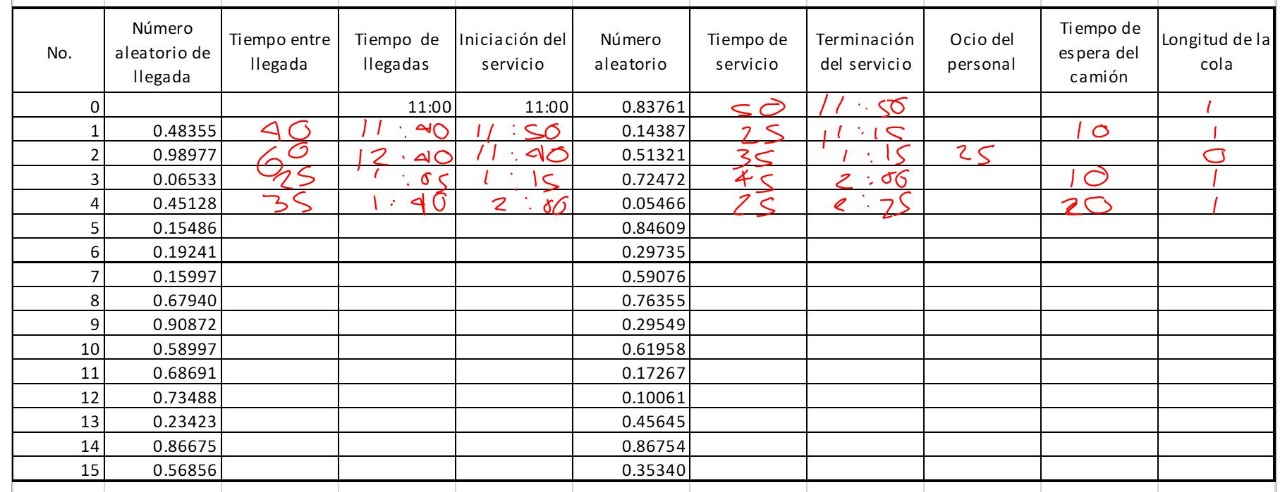 No. Número aleatorio de llegada Tiempo entre llegada Tiempo de llegadas Iniciación del servicio Número aleatorio Tiempo de servicio Terminación del servicio Ocio del personal Tiempo de espera del camión Longitud de la cola
0 11:00 11:00 0.83761 50 11:50 1
1 0.48355 40 11:40 11:50 0.14387 25 11:15 10 1
2 0.98977 60 12:40 11:40 0.51321 35 1:15 25 0
3 0.06533 25 1:05 1:15 0.72472 45 2:00 10 1
4 0.45128 35 1:40 2:00 0.05466 25 2:25 20 1
5 0.15486 0.84609
6 0.19241 0.29735
7 0.15997 0.59076
8 0.67940 0.76355
9 0.90872 0.29549
10 0.58997 0.61958
11 0.68691 0.17267
12 0.73488 0.10061
13 0.23423 0.45645
14 0.86675 0.86754
15 0.56856 0.35340